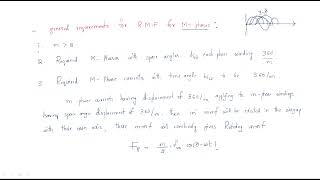 general requirements for R.M.F for M-phase:
1. m > 2
2. Required M-Phase with space angles b/w each phase winding 360/m
3. Required M-Phase currents with time angle b/w to be 360/m.
m phase currents having displacement of 360/m applying to m-phase windings
having space angle displacement of 360/m. then m mmf will be created in the airgap
with their own axis, these mmf will combinely gives Rotating mmf
cos(θ-ωt)